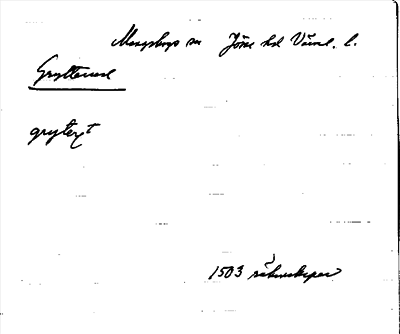 Mangskogs sn Jösse hd Värml. l.
Gryttened
grytext
1503 räkenskaper